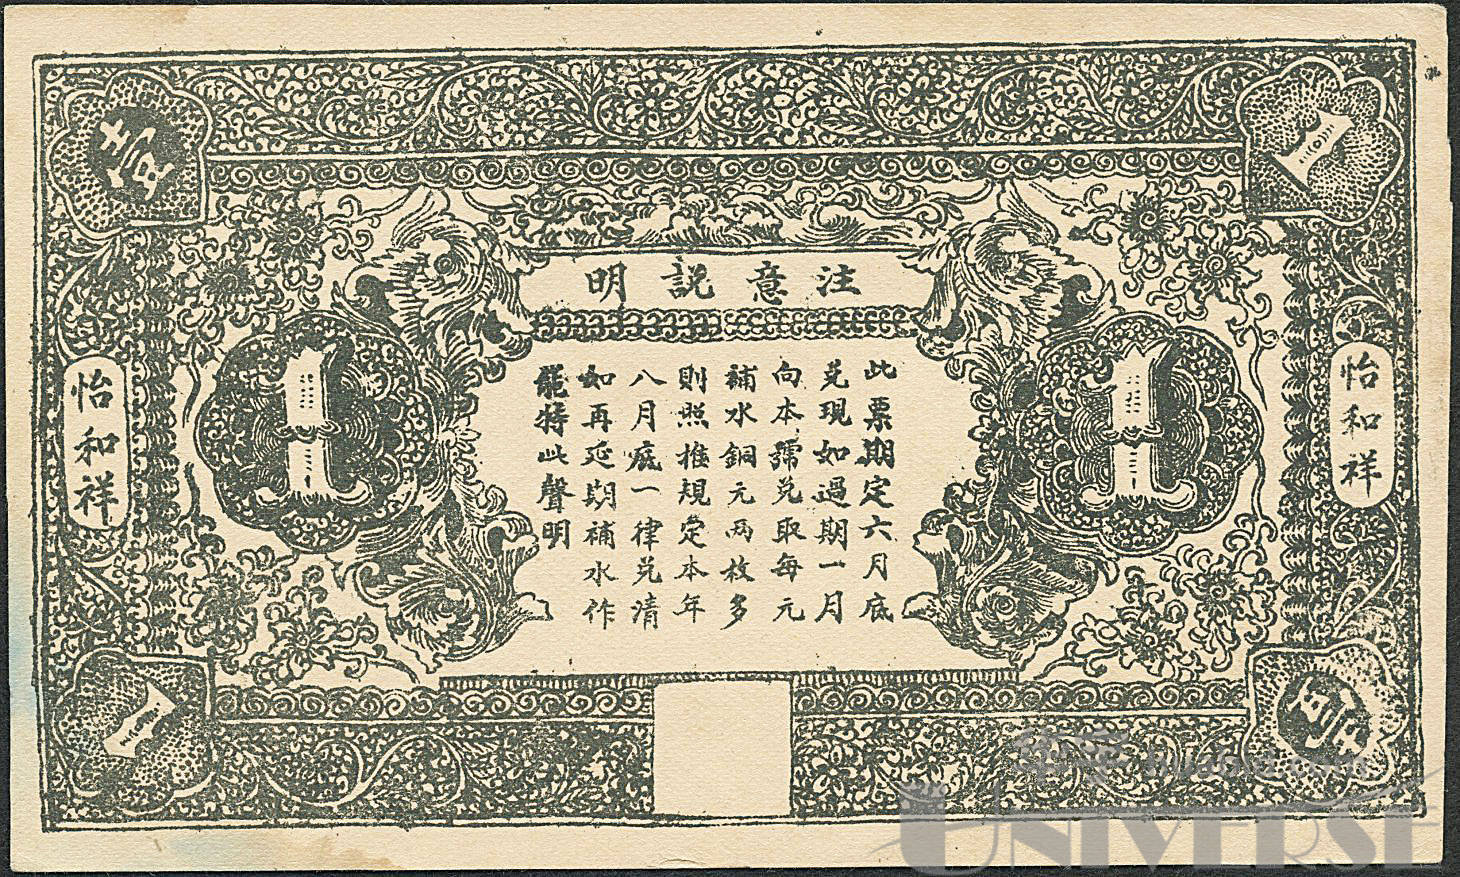 注意説明
此票期定六月底
兑現如過期一月
向本號兑取每元
補水銅元兩枚多
則照推規定本年
八月底一律兑清
如再延期補水作
罷特此聲明
怡和祥
怡和祥
壹
1
1
1
1
UNIVERSE